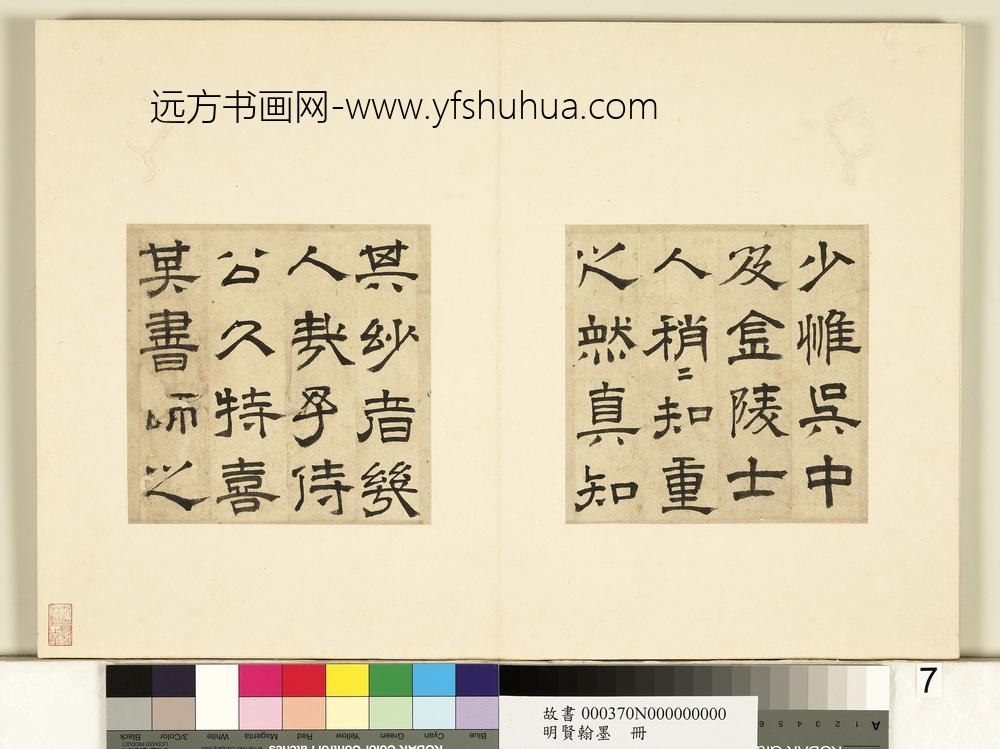 远方书画网-www.yfshuhua.com
少惟吳中
及金陵士
人稍〻知重
之然真知
其紗者幾
人哉予侍
公久特喜
其書師之
7
Black
3/Color
White
Magenta
Red
Yellow
Green
Cyan
Blue
故書 000370N000000000
明賢翰墨 冊
A 1 2 3 4 5 6